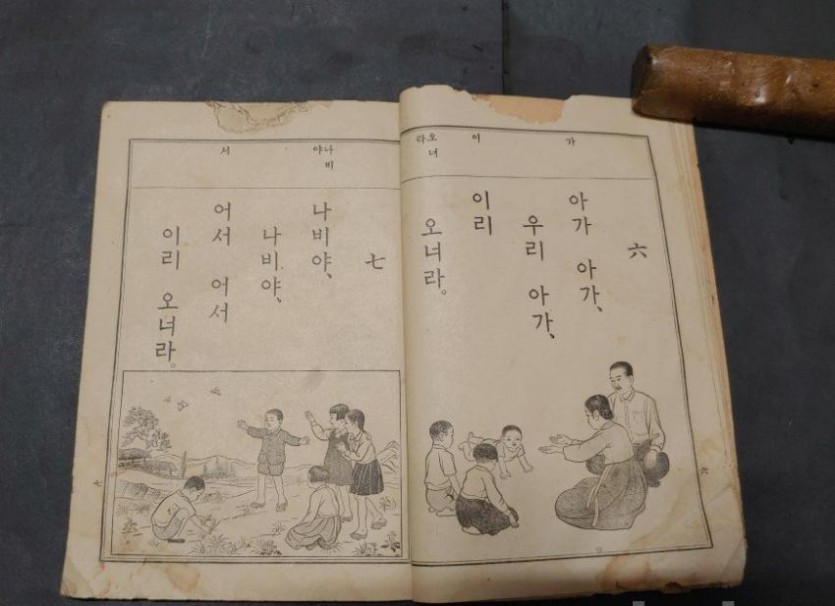 가
이
오너
라
六
아가 아가、
우리 아가、
이리
오너라。
六
나비
야
서
七
나비야、
나비야、
어서 어서
이리 오너라。
七